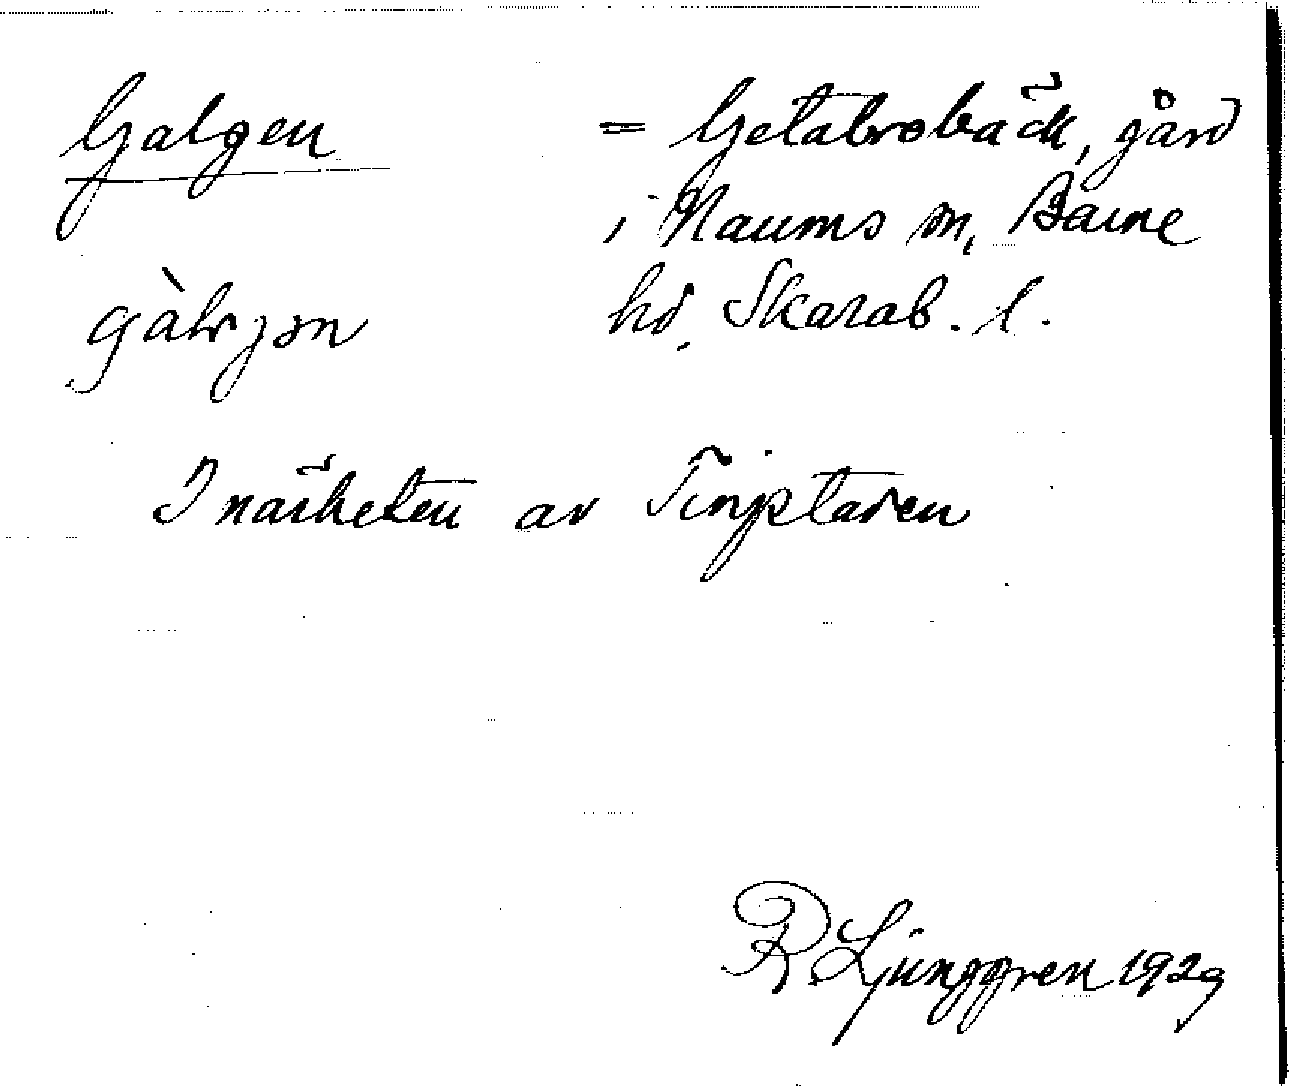 Galgen = Getabrobäck, gård
i Naums sn, Barne
gàlvjən hd, Skarab. l.
I närheten av Tingstaden
R Ljunggren 1929